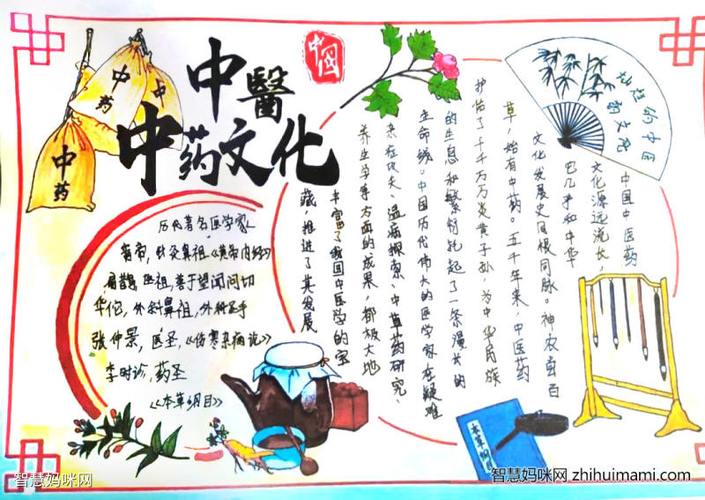 中医
中药文化
中國
中药
中药
中药
灿烂的中医
文化
历代著名医学家
黄帝，针灸鼻祖，《黄帝内经》
扁鹊，医祖，善于望闻问切
华佗，外科鼻祖，外科圣手
张仲景，医圣，《伤寒杂病论》
李时珍，药圣
《本草纲目》
中国中医药
文化源远流长，
它几乎和中华
文化发展史同根同脉。神农尝百
草，始有中药。五千年来，中医药
护佑了千千万万炎黄子孙，为中华民族
的生息和繁衍托起了一条漫长的
生命线。中国历代伟大的医学家在疑难
杂症攻关、温病探索、中草药研究、
养生学等方面的成果，都极大地
丰富了我国中医学的宝
藏，推进了其发展
本草纲目
智慧妈咪网
智慧妈咪网 zhihuimami.com